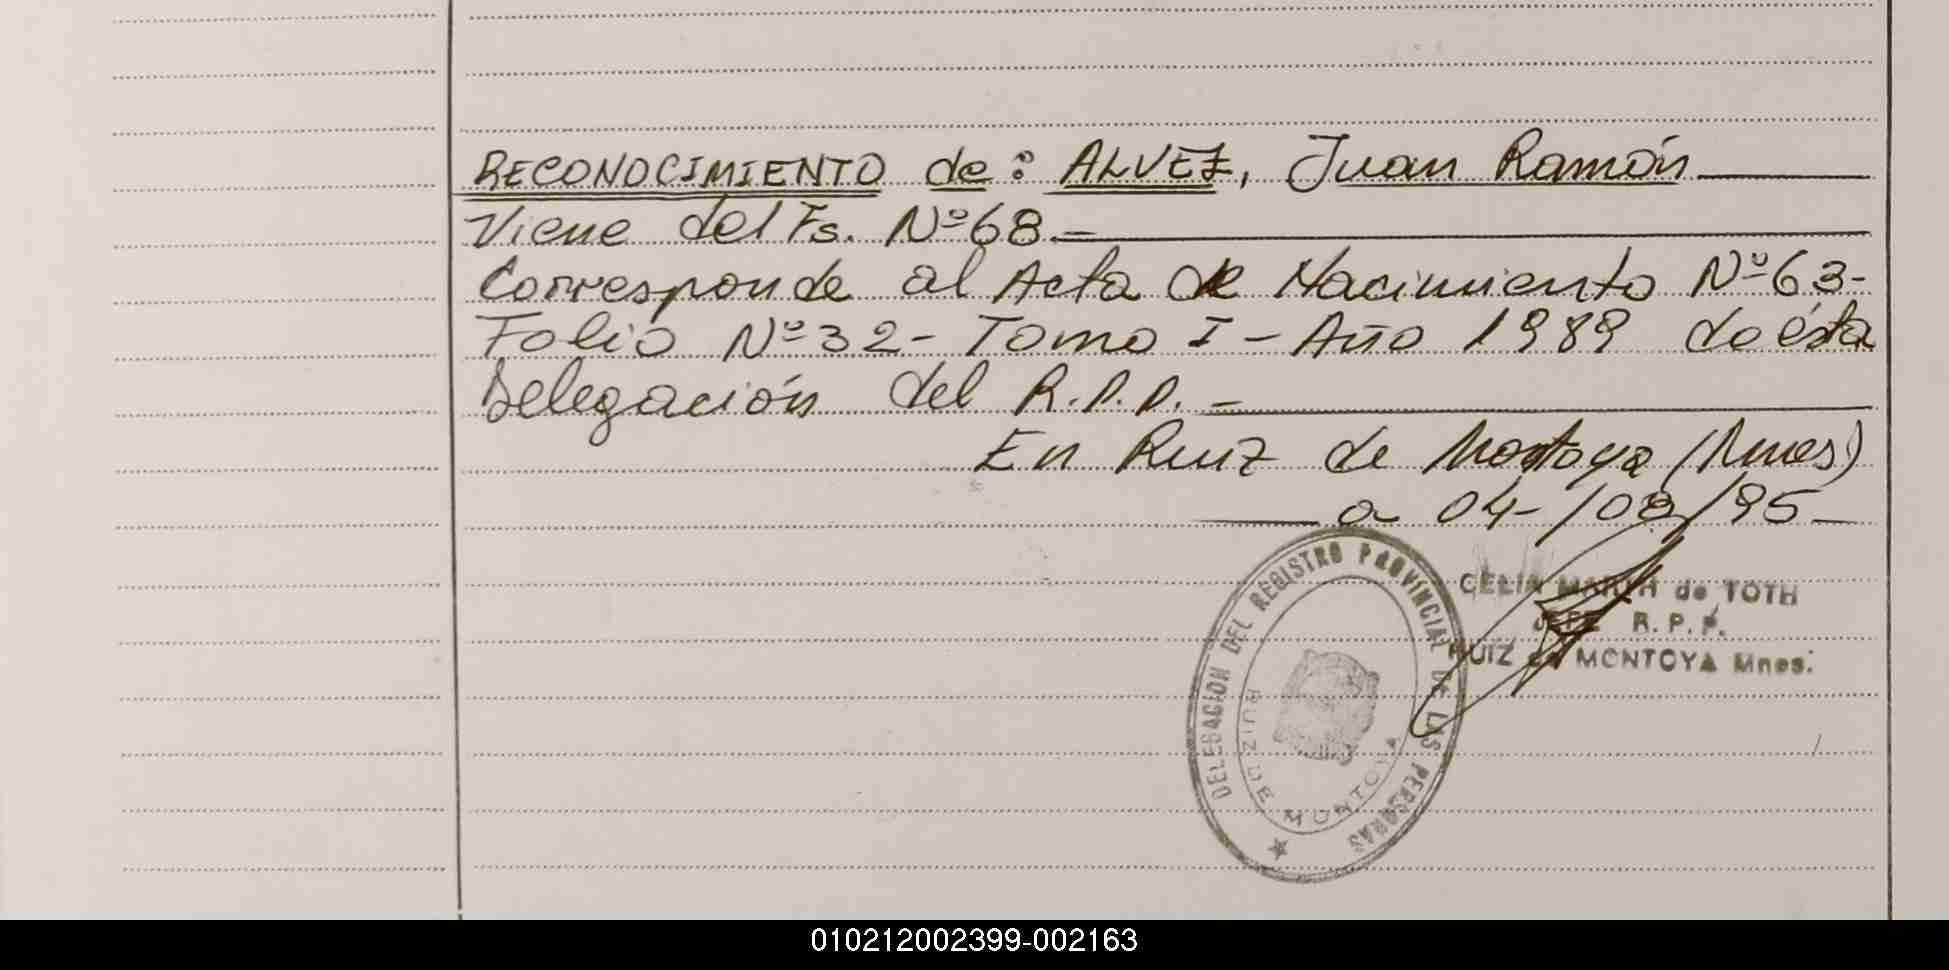 RECONOCIMIENTO de: ALVEZ, Juan Ramón
Viene del Fs. Nº 68.-
Corresponde al Acta de Nacimiento Nº 63-
Folio Nº 32- Tomo I - Año 1989 de ésta
Delegación del R.P.P. -
En Ruiz de Montoya (Mnes)
a 04-/08/95
CELIA MARTA de TOTH
JEFE R.P.P.
RUIZ de MONTOYA Mnes.
DELEGACION DEL REGISTRO PROVINCIAL DE LAS PERSONAS
RUIZ DE MONTOYA
010212002399-002163